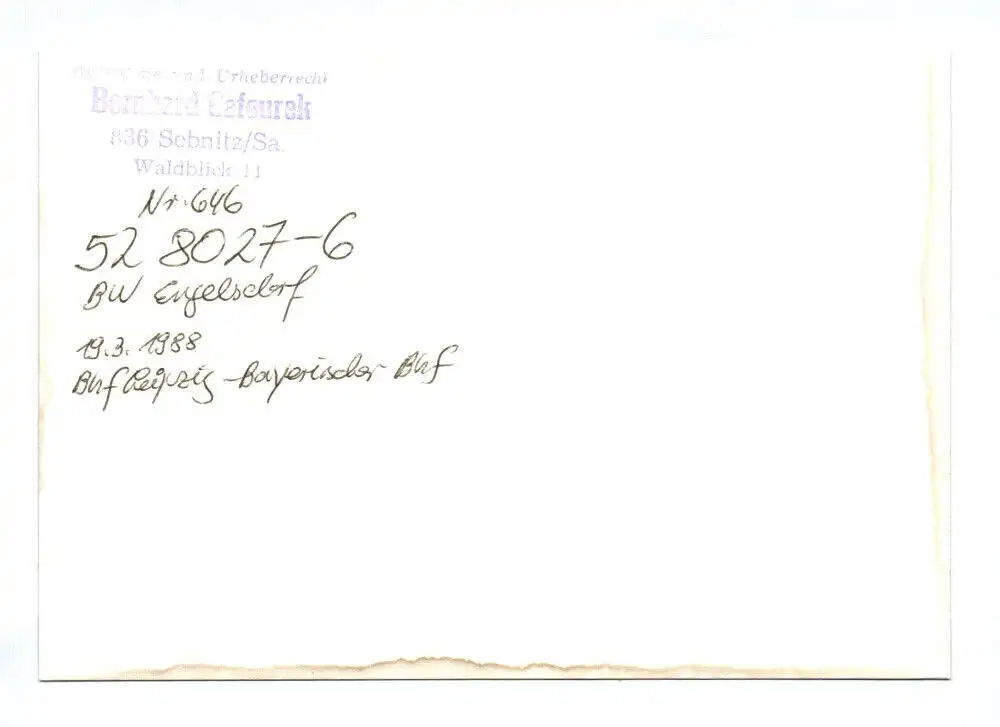 und Urheberrecht
Bernhard Cafourek
836 Sebnitz/Sa.
Waldblick 11
Nr. 646
52 8027-6
BW Engelsdorf
19.3. 1988
Bhf Leipzig-Bayerischer Bhf